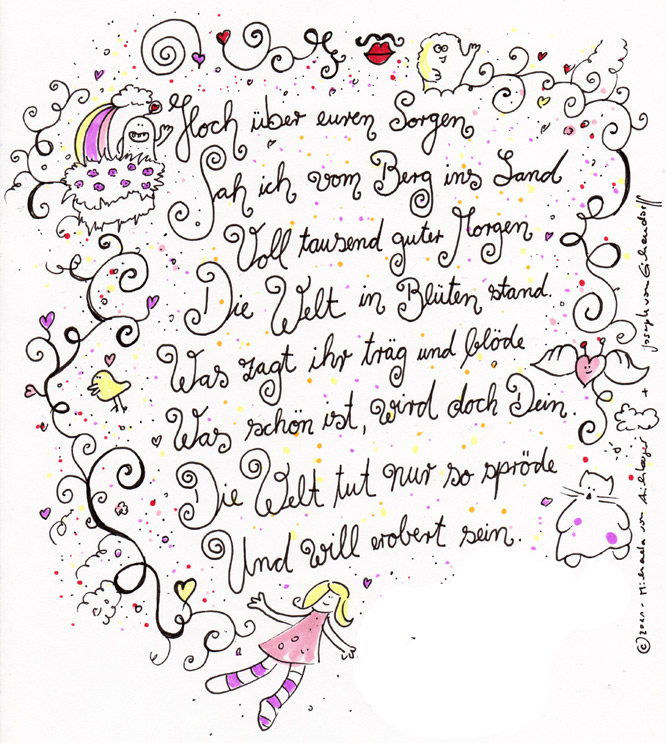 Hoch über euren Sorgen
Sah ich vom Berg ins Land
Voll tausend guter Morgen
Die Welt in Blüten stand.
Was zagt ihr träg und blöde
Was schön ist, wird doch Dein.
Die Welt tut nur so spröde
Und will erobert sein.
© Michaela von + Joseph von